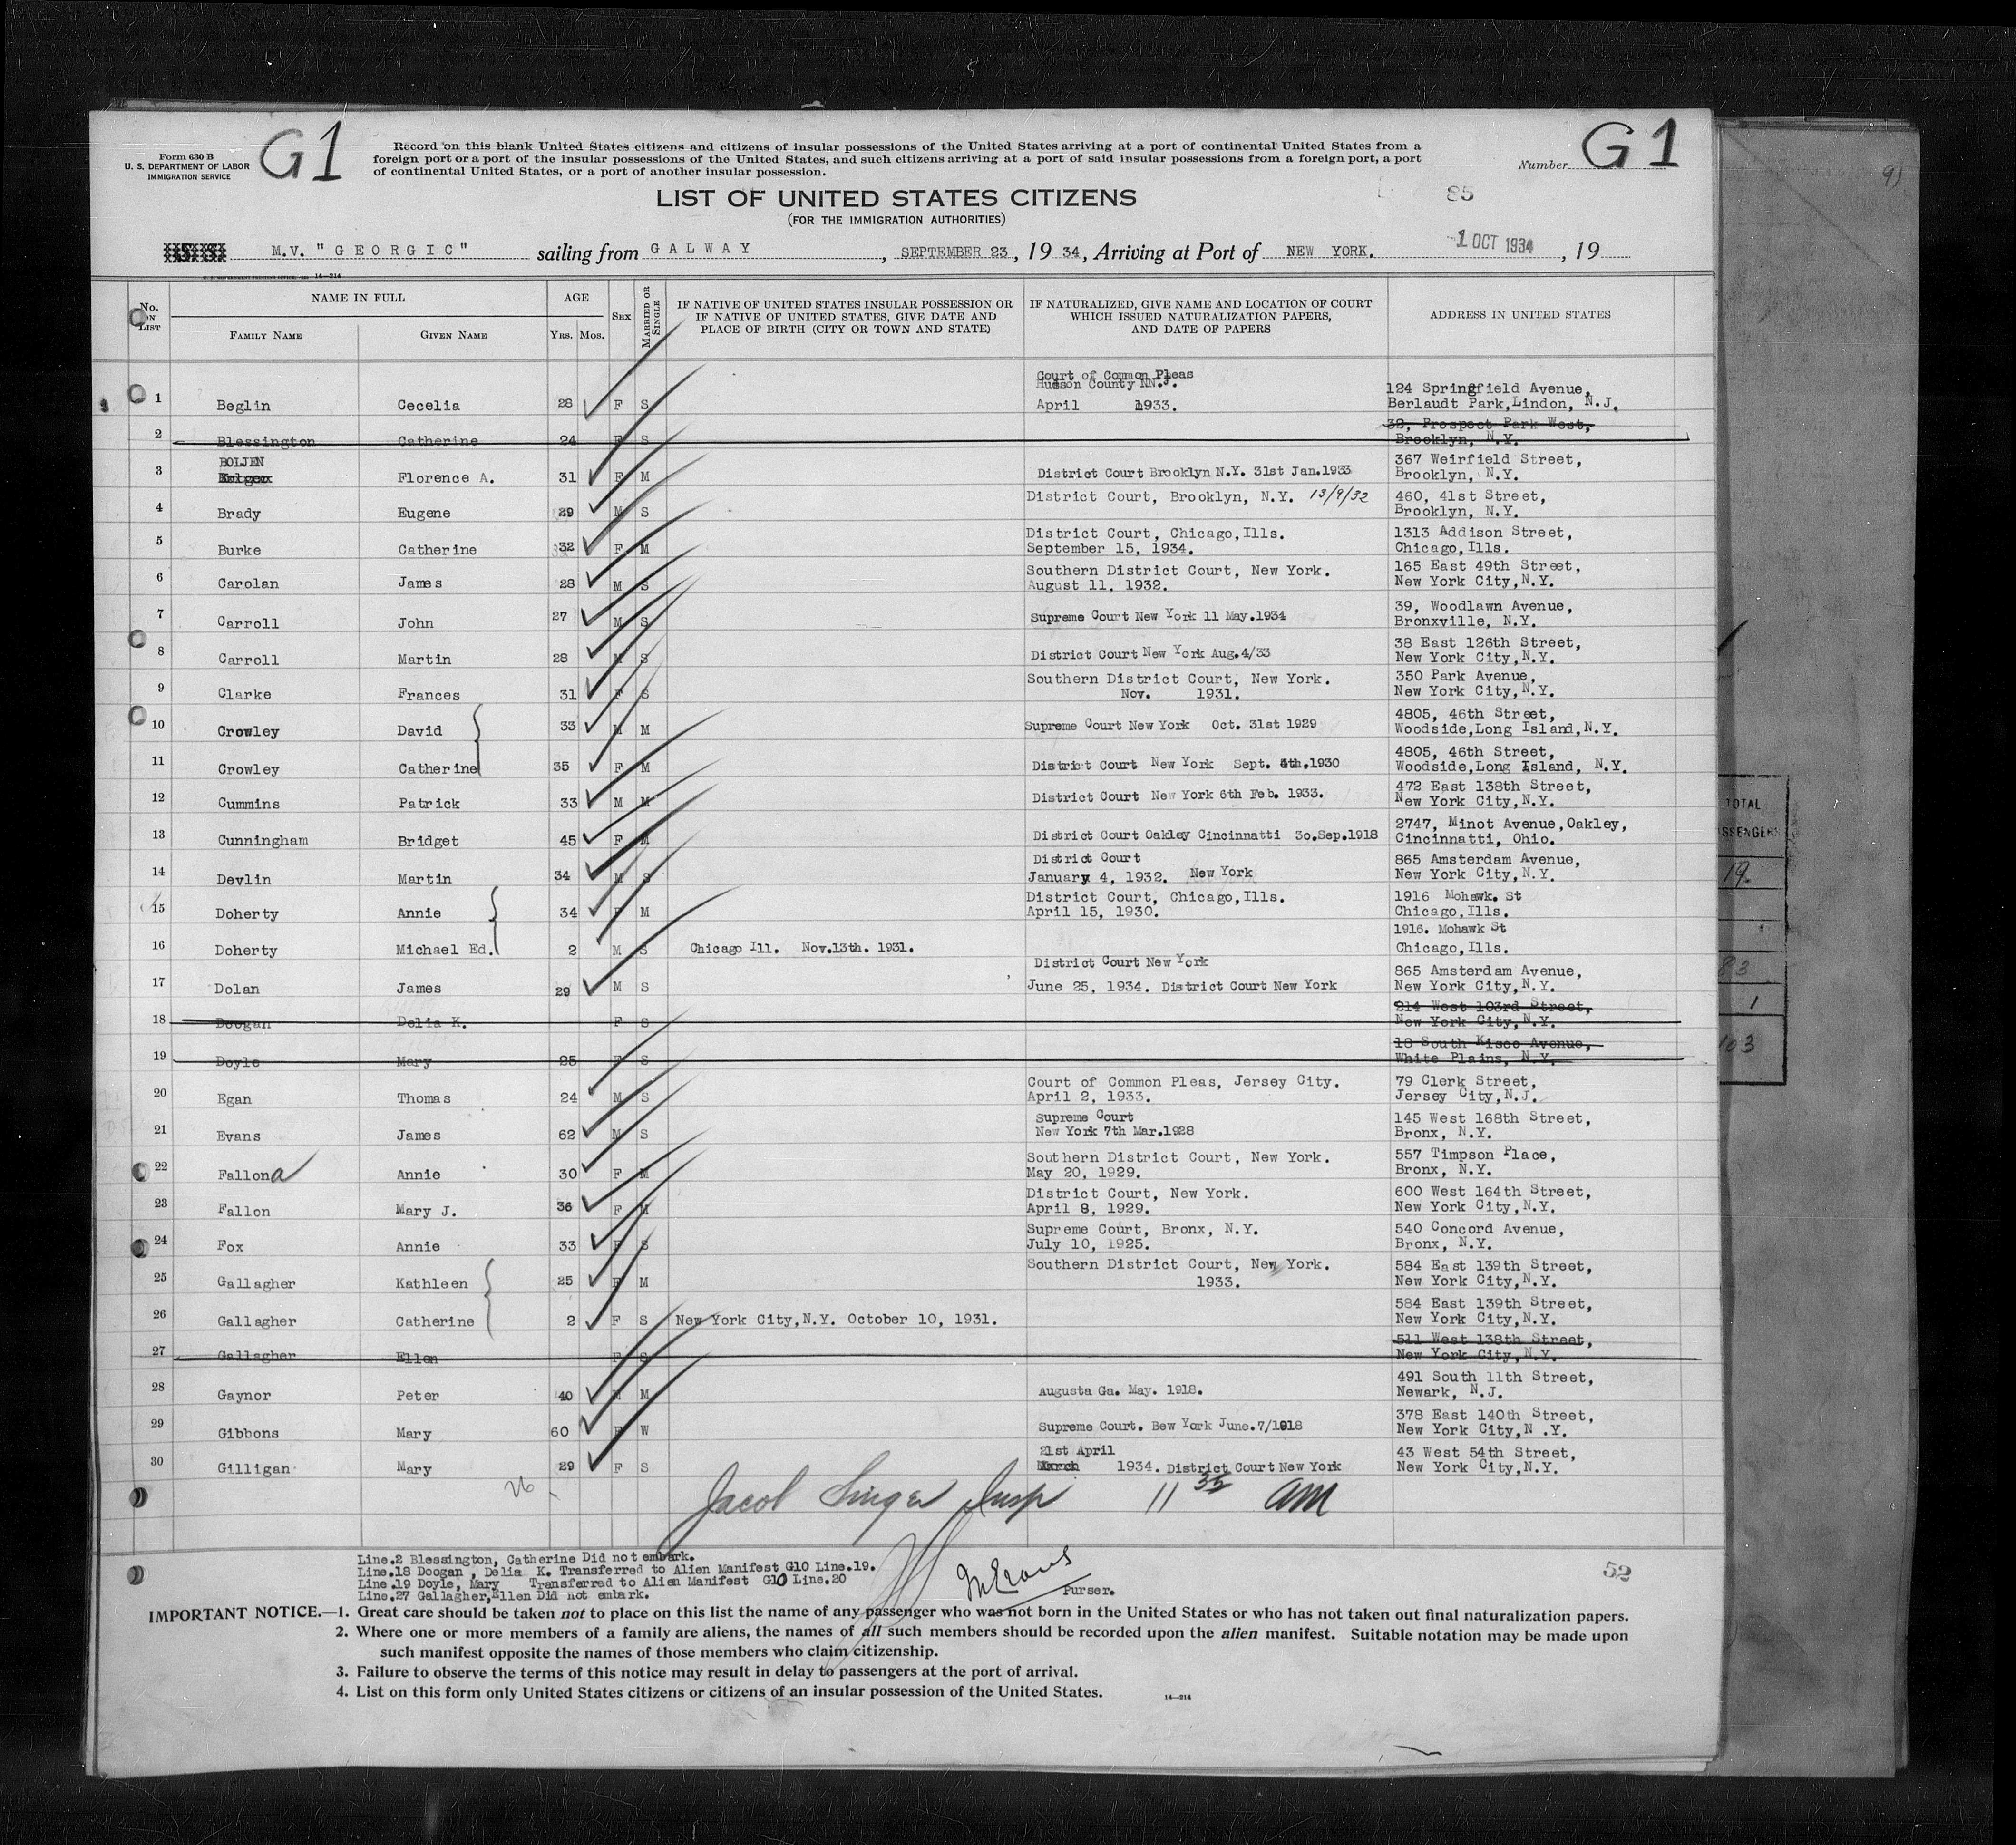 Form 630 B
U. S. DEPARTMENT OF LABOR
IMMIGRATION SERVICE
G1
Record on this blank United States citizens and citizens of insular possessions of the United States arriving at a port of continental United States from a
foreign port or a port of the insular possessions of the United States, and such citizens arriving at a port of said insular possessions from a foreign port, a port
of continental United States, or a port of another insular possession.
Number G1
LIST OF UNITED STATES CITIZENS
(FOR THE IMMIGRATION AUTHORITIES)
85
M.V. "GEORGIC" sailing from GALWAY, SEPTEMBER 23, 19 34, Arriving at Port of NEW YORK. 1 OCT 1934, 19
14-214
No. ON LIST
NAME IN FULL
FAMILY NAME GIVEN NAME
AGE
YRS. MOS.
SEX
MARRIED OR SINGLE
IF NATIVE OF UNITED STATES INSULAR POSSESSION OR
IF NATIVE OF UNITED STATES, GIVE DATE AND
PLACE OF BIRTH (CITY OR TOWN AND STATE)
IF NATURALIZED, GIVE NAME AND LOCATION OF COURT
WHICH ISSUED NATURALIZATION PAPERS,
AND DATE OF PAPERS
ADDRESS IN UNITED STATES
Court of Common Pleas
Hudson County NN.J. 124 Springfield Avenue,
1 Beglin Cecelia 28 F S April 1933. Berlaudt Park,Lindon, N.J.
39, Prospect Park West,
2 Blessington Catherine 24 F S Brooklyn, N.Y.
BOLJEN 367 Weirfield Street,
3 Florence A. 31 F M District Court Brooklyn N.Y. 31st Jan.1933 Brooklyn, N.Y.
District Court, Brooklyn, N.Y. 13/9/32 460, 41st Street,
4 Brady Eugene 29 M S Brooklyn, N.Y.
District Court, Chicago,Ills. 1313 Addison Street,
5 Burke Catherine 32 F M September 15, 1934. Chicago,Ills.
Southern District Court, New York. 165 East 49th Street,
6 Carolan James 28 M S August 11, 1932. New York City,N.Y.
39, Woodlawn Avenue,
7 Carroll John 27 M S Supreme Court New York 11 May.1934 Bronxville, N.Y.
38 East 126th Street,
8 Carroll Martin 28 M S District Court New York Aug.4/33 New York City,N.Y.
Southern District Court, New York. 350 Park Avenue,
9 Clarke Frances 31 F S Nov. 1931. New York City,N.Y.
4805, 46th Street,
10 Crowley David 33 M M Supreme Court New York Oct. 31st 1929 Woodside,Long Island,N.Y.
4805, 46th Street,
11 Crowley Catherine 35 F M District Court New York Sept. 4th.1930 Woodside,Long Island, N.Y.
472 East 138th Street,
12 Cummins Patrick 33 M M District Court New York 6th Feb. 1933. New York City,N.Y.
2747, Minot Avenue,Oakley,
13 Cunningham Bridget 45 F M District Court Oakley Cincinnatti 30.Sep.1918 Cincinnatti, Ohio.
District Court 865 Amsterdam Avenue,
14 Devlin Martin 34 M S January 4, 1932. New York New York City,N.Y.
District Court, Chicago,Ills. 1916 Mohawk. St
15 Doherty Annie 34 F M April 15, 1930. Chicago,Ills.
1916. Mohawk St
16 Doherty Michael Ed. 2 M S Chicago Ill. Nov.13th. 1931. Chicago,Ills.
District Court New York 865 Amsterdam Avenue,
17 Dolan James 29 M S June 25, 1934. District Court New York New York City,N.Y.
214 West 103rd Street,
18 Doogan Delia K. F S New York City,N.Y.
18 South Kisco Avenue,
19 Doyle Mary 25 F S White Plains, N.Y.
Court of Common Pleas, Jersey City. 79 Clerk Street,
20 Egan Thomas 24 M S April 2, 1933. Jersey City,N.J.
Supreme Court 145 West 168th Street,
21 Evans James 62 M S New York 7th Mar.1928 Bronx, N.Y.
Southern District Court, New York. 557 Timpson Place,
22 Fallona Annie 30 F M May 20, 1929. Bronx, N.Y.
District Court, New York. 600 West 164th Street,
23 Fallon Mary J. 36 F M April 8, 1929. New York City,N.Y.
Supreme Court, Bronx, N.Y. 540 Concord Avenue,
24 Fox Annie 33 F S July 10, 1925. Bronx, N.Y.
Southern District Court, New York. 584 East 139th Street,
25 Gallagher Kathleen 25 F M 1933. New York City,N.Y.
584 East 139th Street,
26 Gallagher Catherine 2 F S New York City,N.Y. October 10, 1931. New York City,N.Y.
511 West 138th Street,
27 Gallagher Ellen F S New York City,N.Y.
491 South 11th Street,
28 Gaynor Peter 40 M M Augusta Ga. May. 1918. Newark, N.J.
378 East 140th Street,
29 Gibbons Mary 60 F W Supreme Court. Bew York June.7/1918 New York City,N .Y.
21st April 43 West 54th Street,
30 Gilligan Mary 29 F S March 1934. District Court New York New York City,N.Y.
26
Jacob Singer Insp 11 35 am
Line.2 Blessington, Catherine Did not embark.
Line.18 Doogan , Delia K. Transferred to Alien Manifest G10 Line.19.
Line.19 Doyle, Mary Transferred to Alien Manifest G10 Line.20
Line.27 Gallagher,Ellen Did not embark.
Purser.
52
IMPORTANT NOTICE.—1. Great care should be taken not to place on this list the name of any passenger who was not born in the United States or who has not taken out final naturalization papers.
2. Where one or more members of a family are aliens, the names of all such members should be recorded upon the alien manifest. Suitable notation may be made upon
such manifest opposite the names of those members who claim citizenship.
3. Failure to observe the terms of this notice may result in delay to passengers at the port of arrival.
4. List on this form only United States citizens or citizens of an insular possession of the United States.
14-214
TOTAL
19
83
1
103